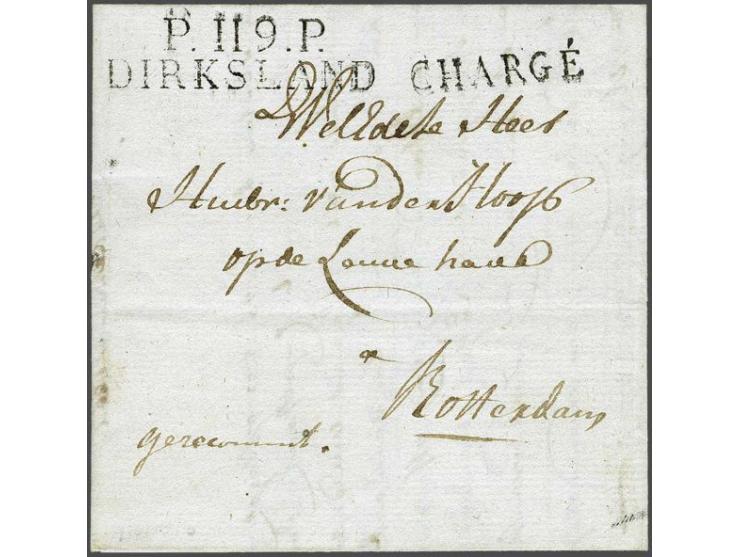 P.119.P.
DIRKSLAND CHARGÉ
WelEdele Heer
Huibr: van der Hoop
op de Leuve have
a
Rotterdam
gerecommt.